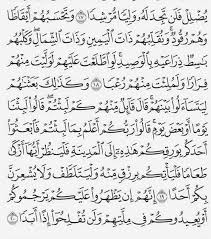 يُضْلِلْ فَلَن تَجِدَ لَهُۥ وَلِيًّا مُّرْشِدًا ١٧ وَتَحْسَبُهُمْ أَيْقَاظًا
وَهُمْ رُقُودٌ ۚ وَنُقَلِّبُهُمْ ذَاتَ ٱلْيَمِينِ وَذَاتَ ٱلشِّمَالِ ۖ وَكَلْبُهُم
بَٰسِطٌ ذِرَاعَيْهِ بِٱلْوَصِيدِ ۚ لَوِ ٱطَّلَعْتَ عَلَيْهِمْ لَوَلَّيْتَ مِنْهُمْ
فِرَارًا وَلَمُلِئْتَ مِنْهُمْ رُعْبًا ١٨ وَكَذَٰلِكَ بَعَثْنَٰهُمْ
لِيَتَسَآءَلُوا۟ بَيْنَهُمْ ۚ قَالَ قَآئِلٌ مِّنْهُمْ كَمْ لَبِثْتُمْ ۖ قَالُوا۟ لَبِثْنَا
يَوْمًا أَوْ بَعْضَ يَوْمٍ ۚ قَالُوا۟ رَبُّكُمْ أَعْلَمُ بِمَا لَبِثْتُمْ فَٱبْعَثُوٓا۟
أَحَدَكُم بِوَرِقِكُمْ هَٰذِهِۦٓ إِلَى ٱلْمَدِينَةِ فَلْيَنظُرْ أَيُّهَآ أَزْكَىٰ
طَعَامًا فَلْيَأْتِكُم بِرِزْقٍ مِّنْهُ وَلْيَتَلَطَّفْ وَلَا يُشْعِرَنَّ
بِكُمْ أَحَدًا ١٩ إِنَّهُمْ إِن يَظْهَرُوا۟ عَلَيْكُمْ يَرْجُمُوكُمْ
أَوْ يُعِيدُوكُمْ فِى مِلَّتِهِمْ وَلَن تُفْلِحُوٓا۟ إِذًا أَبَدًا ٢٠